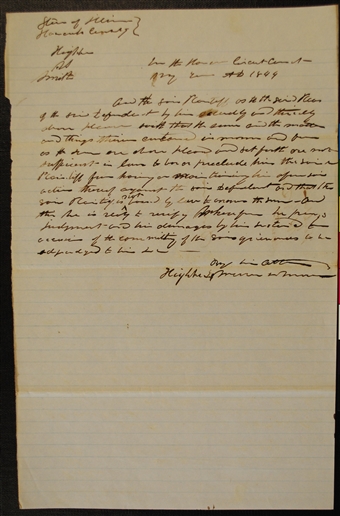 State of Illinois }
Hancock County }
Hughes
vs
Smith
In the Hancock Circuit Court
May Term AD 1844
And the said Plaintiff as to the said Pleas
of the said Defendant by him and thereby
above pleaded saith that the same and the matters
and things therein contained in manner and form
as the same are above pleaded and set forth are not
sufficient in law to bar or preclude him the said
Plaintiff from having or maintaining his aforesaid
action thereof against the said Defendant and that the
said Plaintiff is not bound by law to answer the same and
this he is ready to verify Wherefore he prays
judgment and his damages by him sustained by
occasion of the committing of the said grievances to be
adjudged to him &c
By his Atty